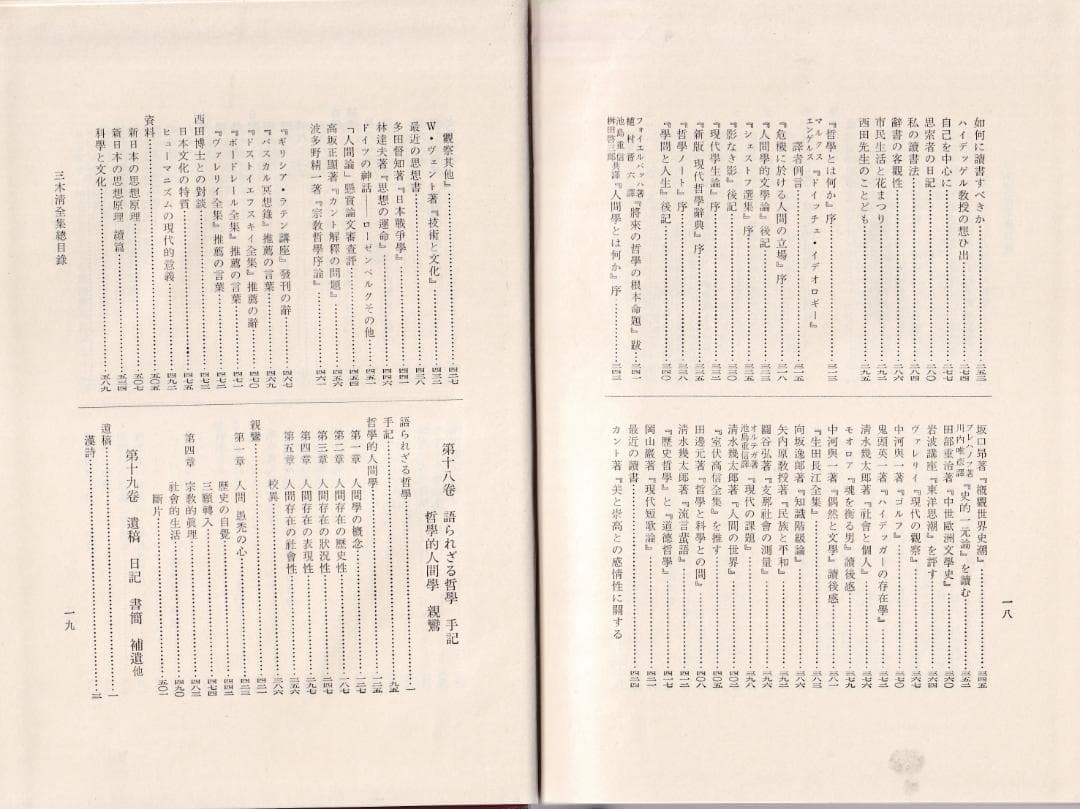 如何に讀書すべきか……二五三
ハイデッゲル教授の想ひ出……二七四
自己を中心に……二七七
思索者の日記……二八〇
私の讀書法……二八四
辭書の客觀性……二八六
市民生活と花まつり……二九二
西田先生のことども……二九五
『哲學とは何か』序……三一三
マルクス エンゲルス『ドイッチェ・イデオロギー』
譯者例言……三一五
『危機に於ける人間の立場』序……三一八
『人間學的文學論』後記……三二三
『シェストフ選集』序……三二五
『影なき影』後記……三三〇
『現代學生論』序……三三二
『新版 現代哲學辭典』序……三三五
『哲學ノート』序……三三八
『學問と人生』後記……三四〇
フォイエルバッハ著 植村晋六譯『將來の哲學の根本命題』跋……三四一
池島重信 桝田啓三郎譯『人間學とは何か』序……三四三
坂口昂著『概觀世界史潮』……三四五
プレハノフ著 川内唯彦譯『史的一元論』を讀む……三五二
田部重治著『中世歐洲文學史』……三六〇
岩波講座『東洋思潮』を評す……三六四
ヴァレリイ『現代の觀察』……三六七
中河與一著『ゴルフ』……三七〇
鬼頭英一著『ハイデッガーの存在學』……三七三
清水幾太郎著『社會と個人』……三七六
モオロア『魂を衡る男』讀後感……三七九
中河與一著『偶然と文學』讀後感……三八一
『生田長江全集』……三八三
向坂逸郎著『知識階級論』……三八八
矢内原教授著『民族と平和』……三九二
圓谷弘著『支那社會の測量』……三九六
オルテガ著 池島重信譯『現代の課題』……三九八
清水幾太郎著『人間の世界』……四〇二
『室伏高信全集』を推す……四〇五
田邊元著『哲學と科學との間』……四〇八
清水幾太郎著『流言蜚語』……四一二
『歷史哲學』と『道德哲學』……四一七
岡山巖著『現代短歌論』……四二一
最近の讀書……四二四
カント著『美と崇高との感情性に關する
一八
觀察其他』……四二七
W・ヴェント著『技術と文化』……四三二
最近の思想書……四三八
多田督知著『日本戰爭學』……四四一
林達夫著『思想の運命』……四四六
ドイツの神話——ローゼンベルクその他——……四五一
「人間論」懸賞論文審査評……四五四
高坂正顯著『カント解釋の問題』……四五六
波多野精一著『宗教哲學序論』……四六一
『ギリシア・ラテン講座』發刊の辭……四六七
『パスカル冥想錄』推薦の言葉……四六九
『ドストイエフスキイ全集』推薦の辭……四七〇
『ボードレール全集』推薦の言葉……四七一
『ヴァレリイ全集』推薦の言葉……四七二
西田博士との對談……四七三
日本文化の特質……四七五
ヒューマニズムの現代的意義……四九二
資料……五〇五
新日本の思想原理……五〇七
新日本の思想原理 續篇……五三四
科學と文化……五八九
三木淸全集總目錄
第十八卷 語られざる哲學 手記
哲學的人間學 親鸞
語られざる哲學……一
手記……九五
哲學的人間學……一二五
第一章 人間學の概念……一二七
第二章 人間存在の歷史性……一八七
第三章 人間存在の狀況性……二四七
第四章 人間存在の表現性……二九七
第五章 人間存在の社會性……三五六
校異……三八六
親鸞……四二一
第一章 人間 愚禿の心……四二三
歷史の自覺……四四二
三願轉入……四七四
第四章 宗教的眞理……四八三
社會的生活……四九〇
斷片……五〇一
第十九卷 遺稿 日記 書簡 補遺他
遺稿……一
漢詩……三
一九